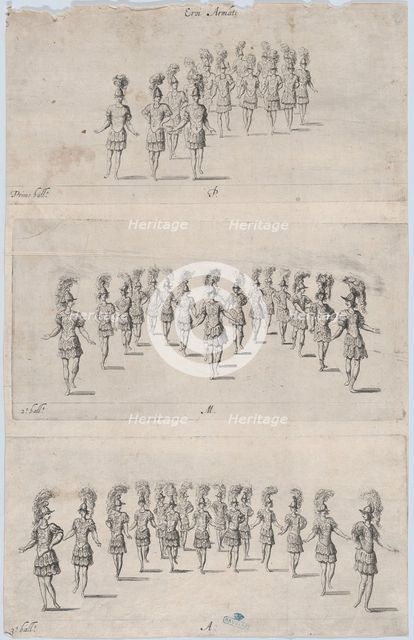 Eroi Armati
Primo ball.º
P.
Heritage Heritage
2.º ball.º
M.
Heritage Heritage
3.º ball.º
A.